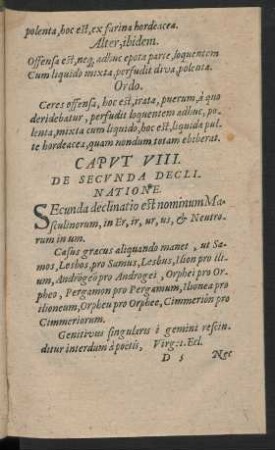 polenta, hoc est, ex farina hordeacea.
Alter, ibidem.
Offensa est, neq; adhuc epota parte, loquentem
Cum liquido mixta, perfudit diva, polenta.
Ordo.
Ceres offensa, hoc est, irata, puerum, à quo
deridebatur, perfudit loquentem adhuc, po-
lenta, mixta cum liquido, hoc est, liquida pul-
te hordeacea, quam nondum totam ebiberat.
CAPVT VIII.
DE SECVNDA DECLI-
NATIONE.
SEcunda declinatio est nominum Ma-
sculinorum, in Er, ir, ur, us, & Neutro-
rum in um.
Casus græcus aliquando manet, ut Sa-
mos, Lesbos, pro Samus, Lesbus, Ilion pro ili-
um, Andrògeō pro Androgei, Orphei pro Or-
pheo, Pergamon pro Pergamum, Ilionea pro
ilioneum, Orpheu pro Orphee, Cimmeriōn pro
Cimmeriorum.
Genitivus singularis i gemini rescin-
ditur interdum à poëtis, Virg: 1. Ecl.
D 5 Nec